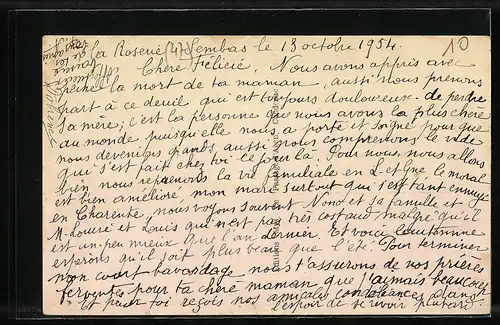 La Roserie (47) Sembas le 13 octobre 1954.
Chère Félicie. Nous avons appris avec
peine la mort de ta maman, aussi nous prenons
part à ce deuil qui est toujours douloureux de perdre
sa mère; c'est la personne que nous avons la plus chère
au monde puisqu'elle nous a porté et soigné pour que
nous devenions grands, aussi nous comprenons le vide
qui s'est fait chez toi ce jour là. Pour nous, nous allons
bien nous reprenons la vie familiale en L et G le moral
est bien amélioré, mon mari surtout qui s'est tant ennuyé
en Charente, nous voyons souvent Nono et sa famille et
M. Douré et Louis qui n'est pas très costaud malgré qu'il
est un peu mieux que l'an dernier. Et voici l'automne
espérons qu'il soit plus beau que l'été. Pour terminer
mon court bavardage nous t'assurons de nos prières
ferventes pour ta chère maman que j'aimais beaucoup
Et pour toi reçois nos amicales condoléances dans
l'espoir de te revoir plus tard.
10